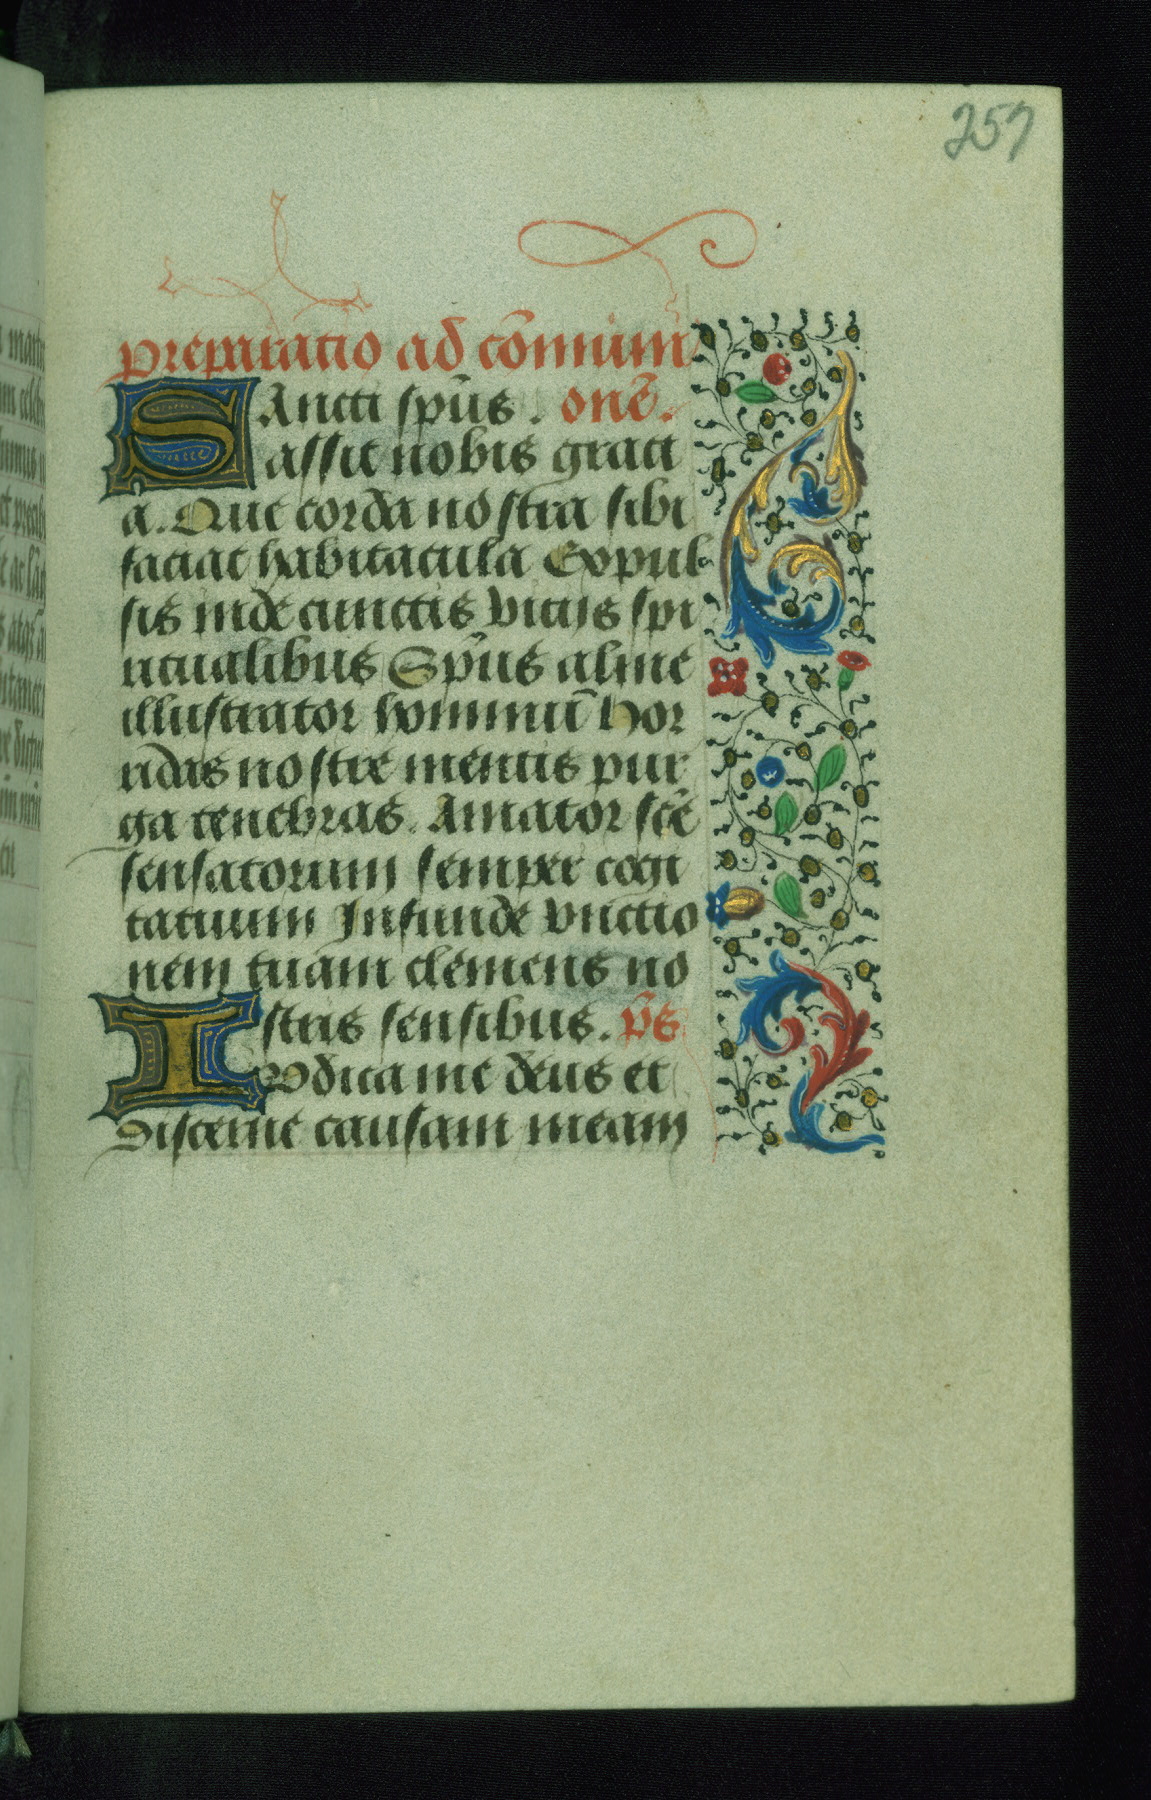 257
Preparatio ad cōmuni
SAncti spūs . onē.
assit nobis graci
a. Que corda nostra sibi
faciat habitacula Expul
sis inde cunctis vitijs spi
ritualibus Spūs alme
illustrator hominū Hor
ridas nostre mentis pur
ga tenebras. Amator scē
sensatorum semper cogi
tatuum Infunde vnctio
nem tuam clemens no
stris sensibus. p̄s
IVdica me deus et
discerne causam meam